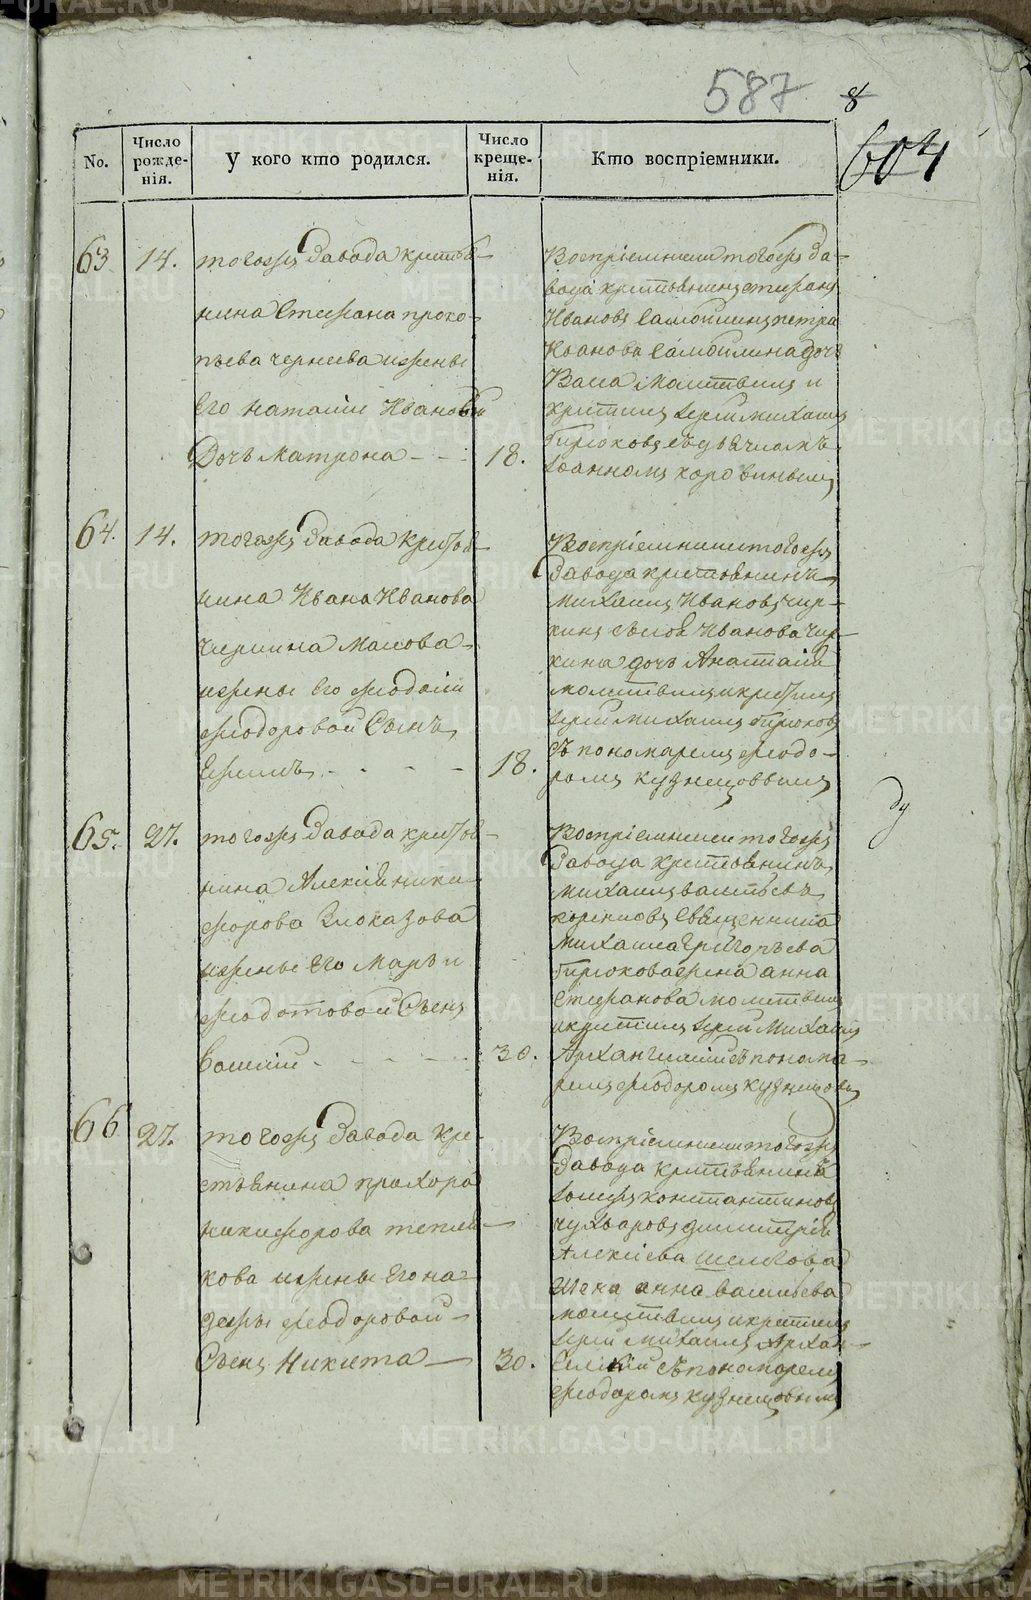 587
8
604
No.
Число рожде-нія.
У кого кто родился.
Число креще-нія.
Кто воспріемники.
63
14.
тогожъ Завода крестья-
нина Стефана проко-
пьева чернаева и жены
Его Наталіи Ивановой
Дочь матрона
18.
Воспріемники тогожъ за-
вода крестьянинъ стефанъ
Ивановъ Самойлинъ петра
Иванова Самойлина дочь
молитвилъ и
крестилъ Іерей михаилъ
Бирюковъ съ дьячкомъ
Іоанномъ коровинымъ
64.
14.
тогожъ Завода Крестья-
нина Ивана Иванова
жены Его феодосіи
феодоровой Сынъ
Ефимъ
18.
Воспріемники тогожъ
завода крестьянинъ
михаилъ Ивановъ чир-
кинъ Иванова Чир-
кина дочь Анастасія
молитвилъ и крестилъ
Іерей михаилъ Бирюковъ
съ пономаремъ феодо-
ромъ кузнецовымъ
ду
65.
27.
тогожъ Завода крестья-
нина Алексія ники-
форова Злоказова
и жены Его Маріи
феодотовой Сынъ
Василій
30.
Воспріемники тогожъ
Завода крестьянинъ
михаилъ васильевъ
Священника
михаила Григорьева
Бирюкова жена анна
Стефанова молитвилъ
и крестилъ Іерей михаилъ
Архангельскій съ понома-
ремъ феодоромъ кузнецовы
66
27.
тогожъ Завода кре-
стьянина прохора
никифорова тепля-
кова и жены Его на-
дежды феодоровой
Сынъ Никита
30.
Воспріемники тогожъ
Завода крестьянинъ
константиновъ
чухваровъ димитрія
Алексіева
жена анна васильева
молитвилъ и крестилъ
Іерей михаилъ Архан-
гелскій съ пономаремъ
феодоромъ кузнецовымъ
METRIKI.GASO-URAL.RU